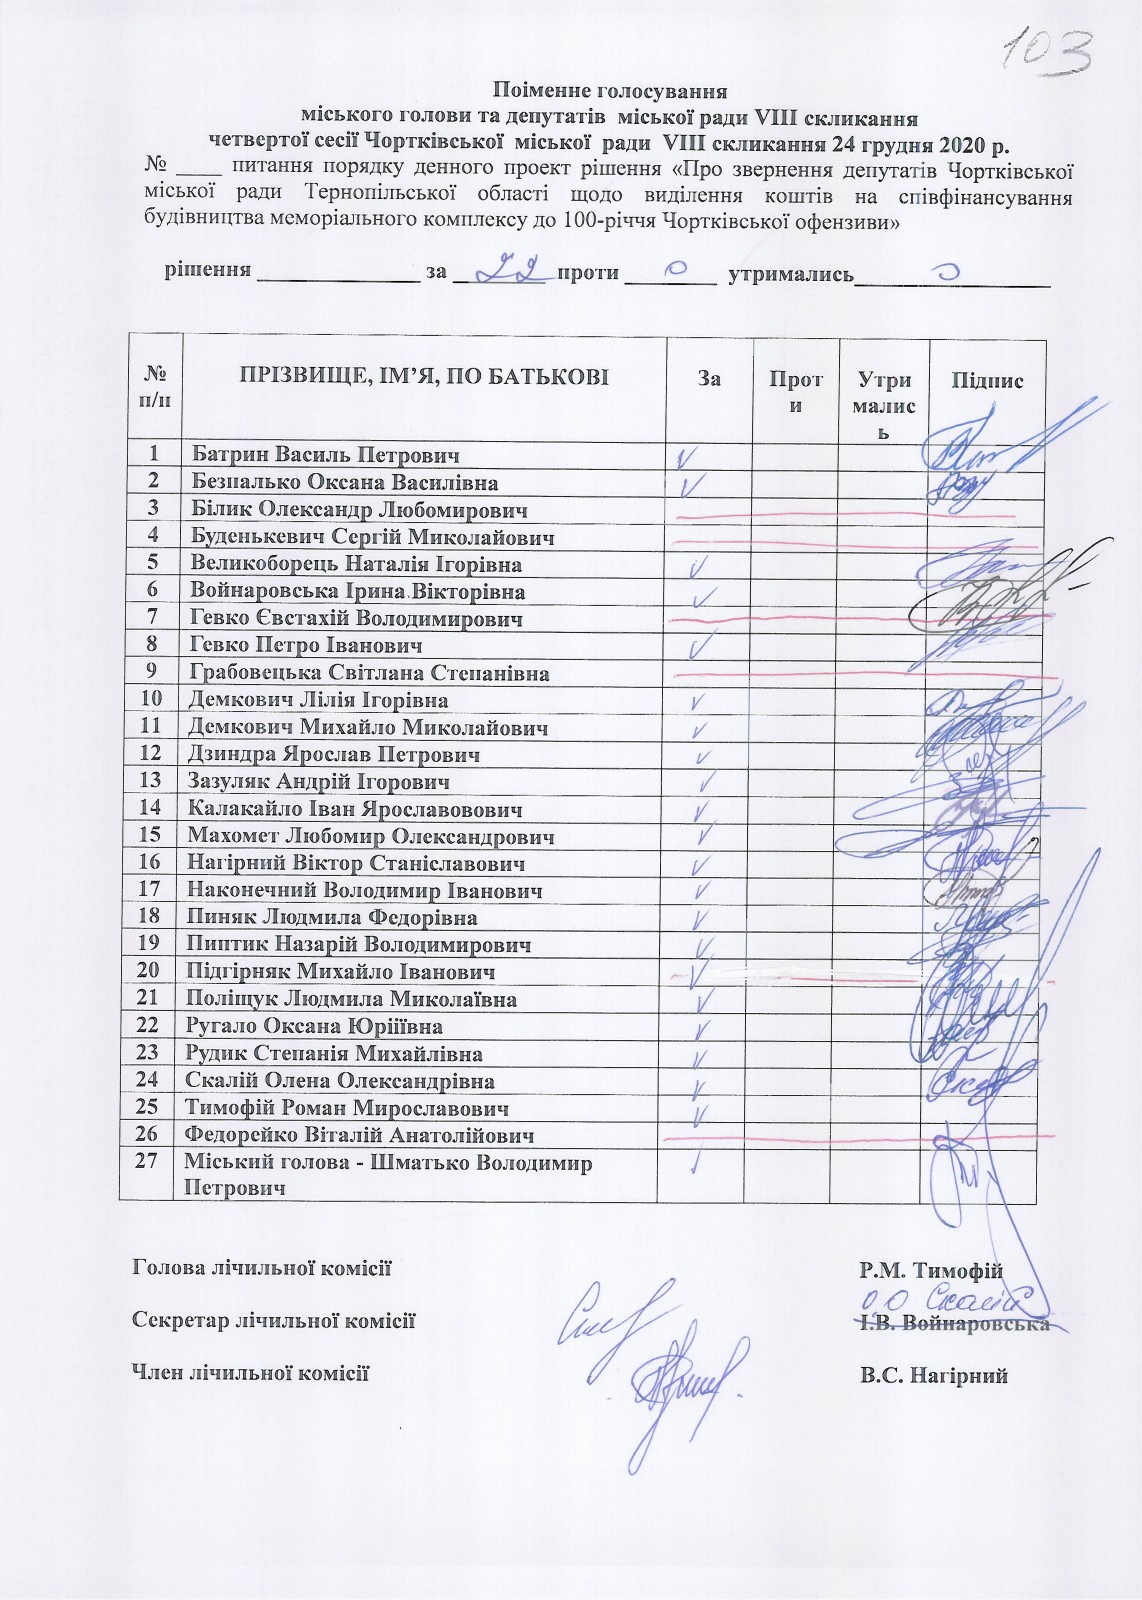 103
Поіменне голосування
міського голови та депутатів міської ради VIII скликання
четвертої сесії Чортківської міської ради VIII скликання 24 грудня 2020 р.
№ ____ питання порядку денного проект рішення «Про звернення депутатів Чортківської
міської ради Тернопільської області щодо виділення коштів на співфінансування
будівництва меморіального комплексу до 100-річчя Чортківської офензиви»
рішення ______________ за 22 проти 0 утримались 0
№ п/п ПРІЗВИЩЕ, ІМ’Я, ПО БАТЬКОВІ За Проти Утрималис ь Підпис
1 Батрин Василь Петрович
2 Безпалько Оксана Василівна
3 Білик Олександр Любомирович
4 Буденькевич Сергій Миколайович
5 Великоборець Наталія Ігорівна
6 Войнаровська Ірина Вікторівна
7 Гевко Євстахій Володимирович
8 Гевко Петро Іванович
9 Грабовецька Світлана Степанівна
10 Демкович Лілія Ігорівна
11 Демкович Михайло Миколайович
12 Дзиндра Ярослав Петрович
13 Зазуляк Андрій Ігорович
14 Калакайло Іван Ярославовович
15 Махомет Любомир Олександрович
16 Нагірний Віктор Станіславович
17 Наконечний Володимир Іванович
18 Пиняк Людмила Федорівна
19 Пиптик Назарій Володимирович
20 Підгірняк Михайло Іванович
21 Поліщук Людмила Миколаївна
22 Ругало Оксана Юріїївна
23 Рудик Степанія Михайлівна
24 Скалій Олена Олександрівна
25 Тимофій Роман Мирославович
26 Федорейко Віталій Анатолійович
27 Міський голова - Шматько Володимир
Петрович
Голова лічильної комісії Р.М. Тимофій
О.О Скалій
Секретар лічильної комісії І.В. Войнаровська
Член лічильної комісії В.С. Нагірний